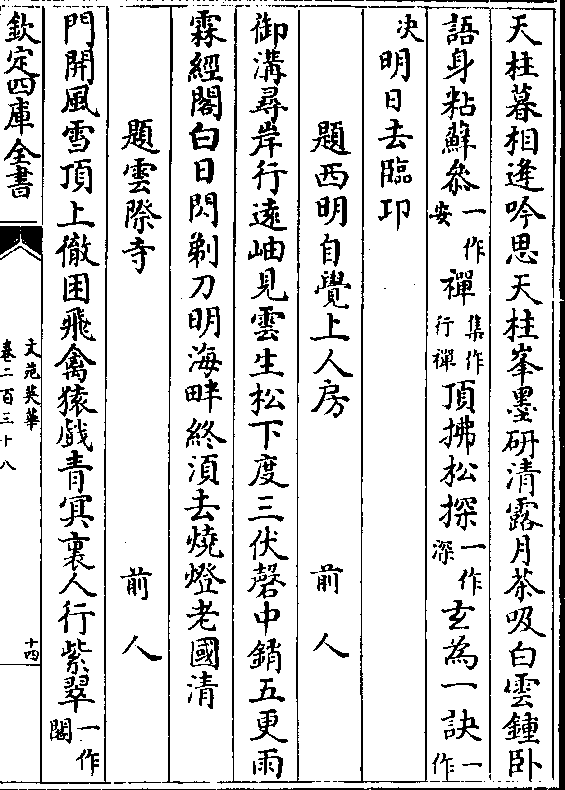 天柱暮相逢吟思天柱峯墨研清露月茶吸白雲鍾卧
語身粘蘚叅一作安禪集作行禪頂拂松探一作深𤣥為一訣一作
决明日去臨卭
題西明自覺上人房 前人
御溝尋岸行逺岫見雲生松下度三伏磬中銷五更雨
霖經閣白日閃剃刀明海畔終湏去燒燈老國清
題雲際寺 前人
門開風雪頂上徹困飛禽猿戲青冥裏人行紫翠一作閣
欽定四庫全書
文苑英華
卷二百三十八
十四